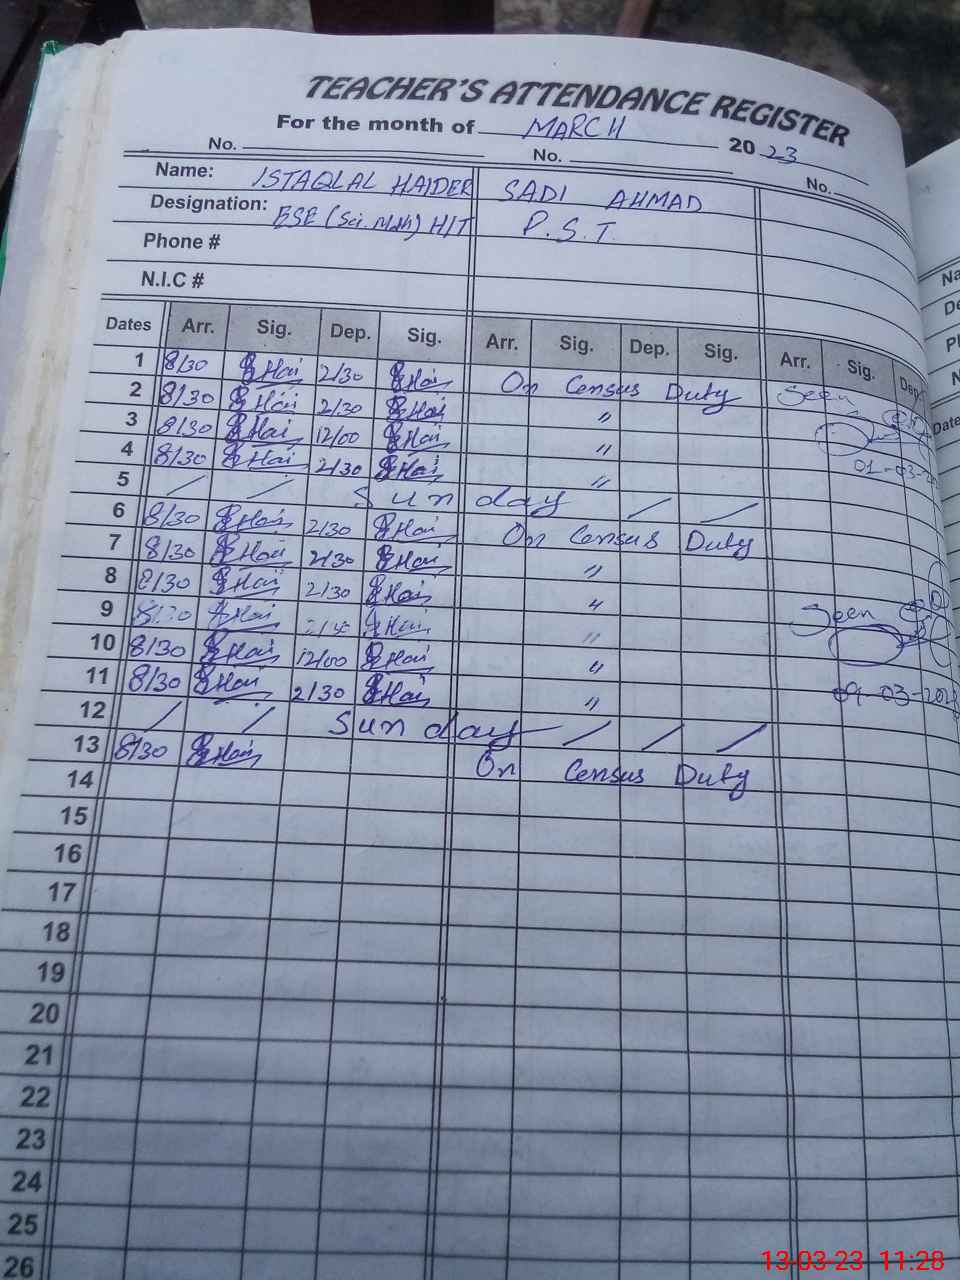 TEACHER'S ATTENDANCE REGISTER
For the month of MARCH 2023
No. No. No.
Name: ISTAQLAL HAIDER SADI AHMAD
Designation: ESE (Sci. Math) H/T P.S.T.
Phone #
N.I.C #
Dates Arr. Sig. Dep. Sig. Arr. Sig. Dep. Sig. Arr. Sig. Dep
1 8/30 Hai 2/30 Hai On Census Duty Seen
2 8/30 Hai 2/30 Hai "
3 8/30 Hai 12/00 Hai "
4 8/30 Hai 2/30 Hai " 01-03-20
5 / / Sunday / /
6 8/30 Hai 2/30 Hai On Census Duty
7 8/30 Hai 2/30 Hai "
8 8/30 Hai 2/30 Hai "
9 Hai Hai " Seen
10 8/30 Hai 12/00 Hai "
11 8/30 Hai 2/30 Hai " 09-03-2023
12 / / Sunday / / /
13 8/30 Hai On Census Duty
14
15
16
17
18
19
20
21
22
23
24
25
26
Na
De
Ph
N
Date
13-03-23 11:28